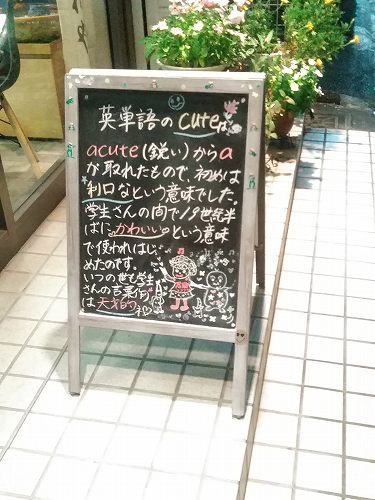 英単語のcuteは、
acute(鋭い)からa
が取れたもので、初めは
利口なという意味でした。
学生さんの間で19世紀半
ばに。かわいい。という意味
で使われはじ
めたのです。
いつの世も学生
さんの言葉作り
は天才的